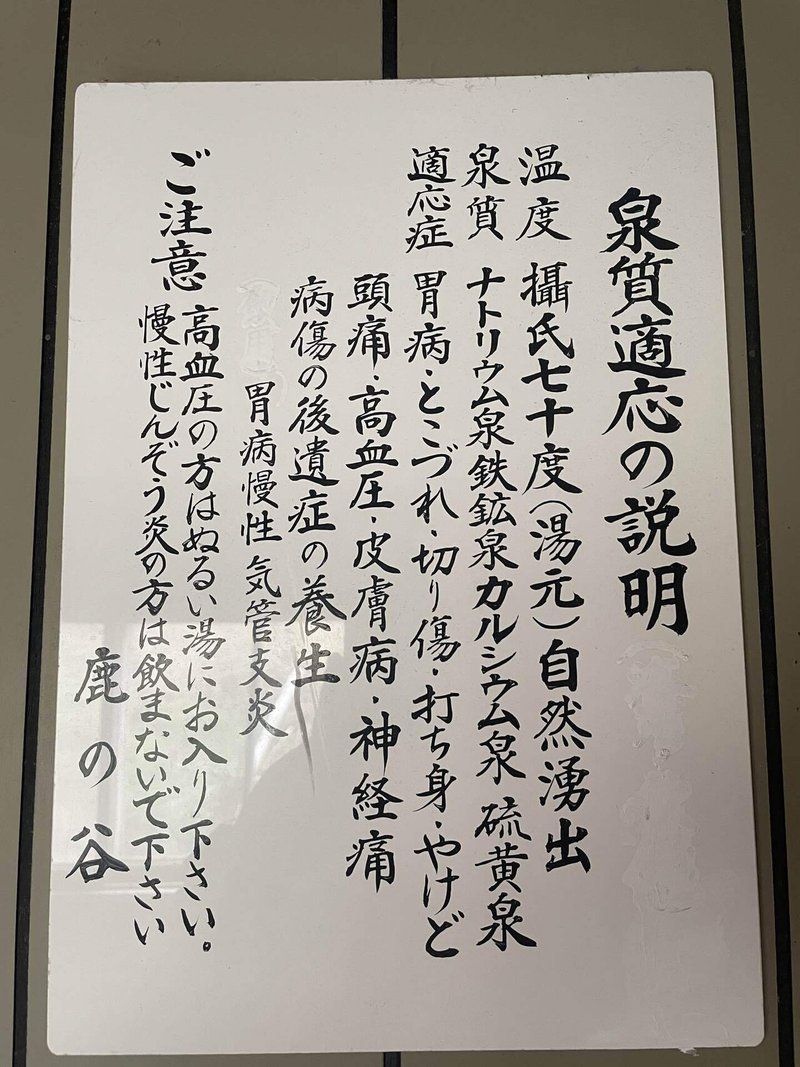 泉質適応の説明
温度 攝氏七十度(湯元)自然湧出
泉質 ナトリウム泉鉄鉱泉カルシウム泉 硫黄泉
適応症 胃病・とこづれ・切り傷・打ち身・やけど
頭痛・高血圧・皮膚病・神経痛
病傷の後遺症の養生
胃病慢性気管支炎
ご注意 高血圧の方はぬるい湯にお入り下さい。
慢性じんぞう炎の方は飲まないで下さい
鹿の谷